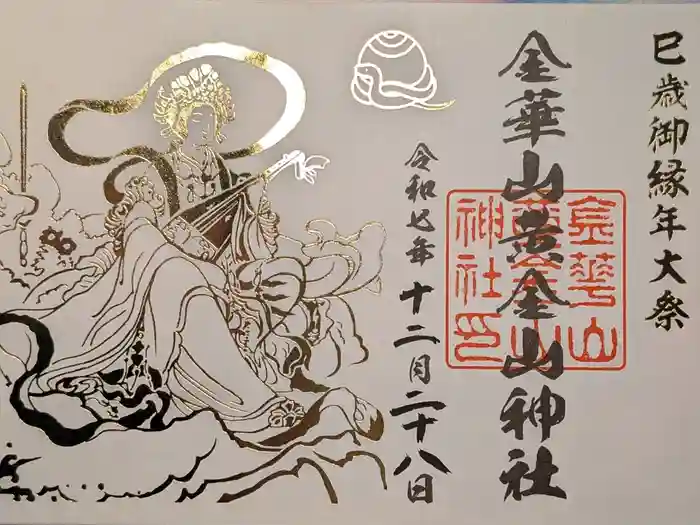 巳歳御縁年大祭
金華山黄金山神社
令和七年十二月二十八日
金華山
黄金山
神社印